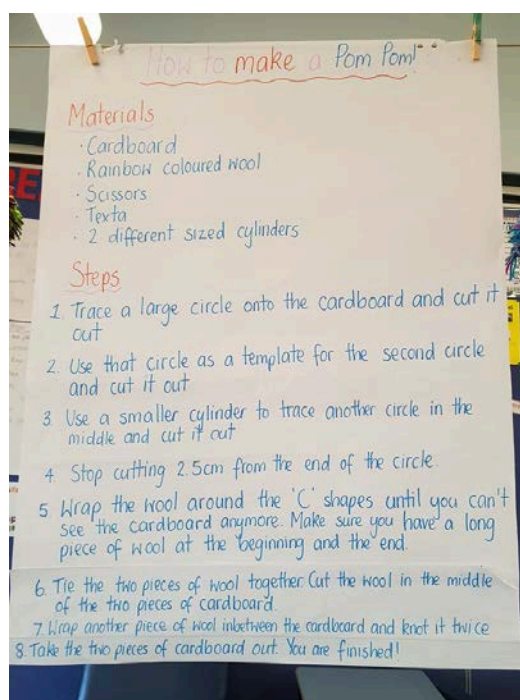 How to make a Pom Pom!
Materials
· Cardboard
· Rainbow coloured wool
· Scissors
· Texta
· 2 different sized cylinders
Steps
1. Trace a large circle onto the cardboard and cut it
out
2. Use that circle as a template for the second circle
and cut it out
3. Use a smaller cylinder to trace another circle in the
middle and cut it out
4. Stop cutting 2.5cm from the end of the circle.
5. Wrap the wool around the 'C' shapes until you can't
see the cardboard anymore. Make sure you have a long
piece of wool at the beginning and the end.
6. Tie the two pieces of wool together. Cut the wool in the middle
of the two pieces of cardboard.
7. Wrap another piece of wool inbetween the cardboard and knot it twice
8. Take the two pieces of cardboard out. You are finished!